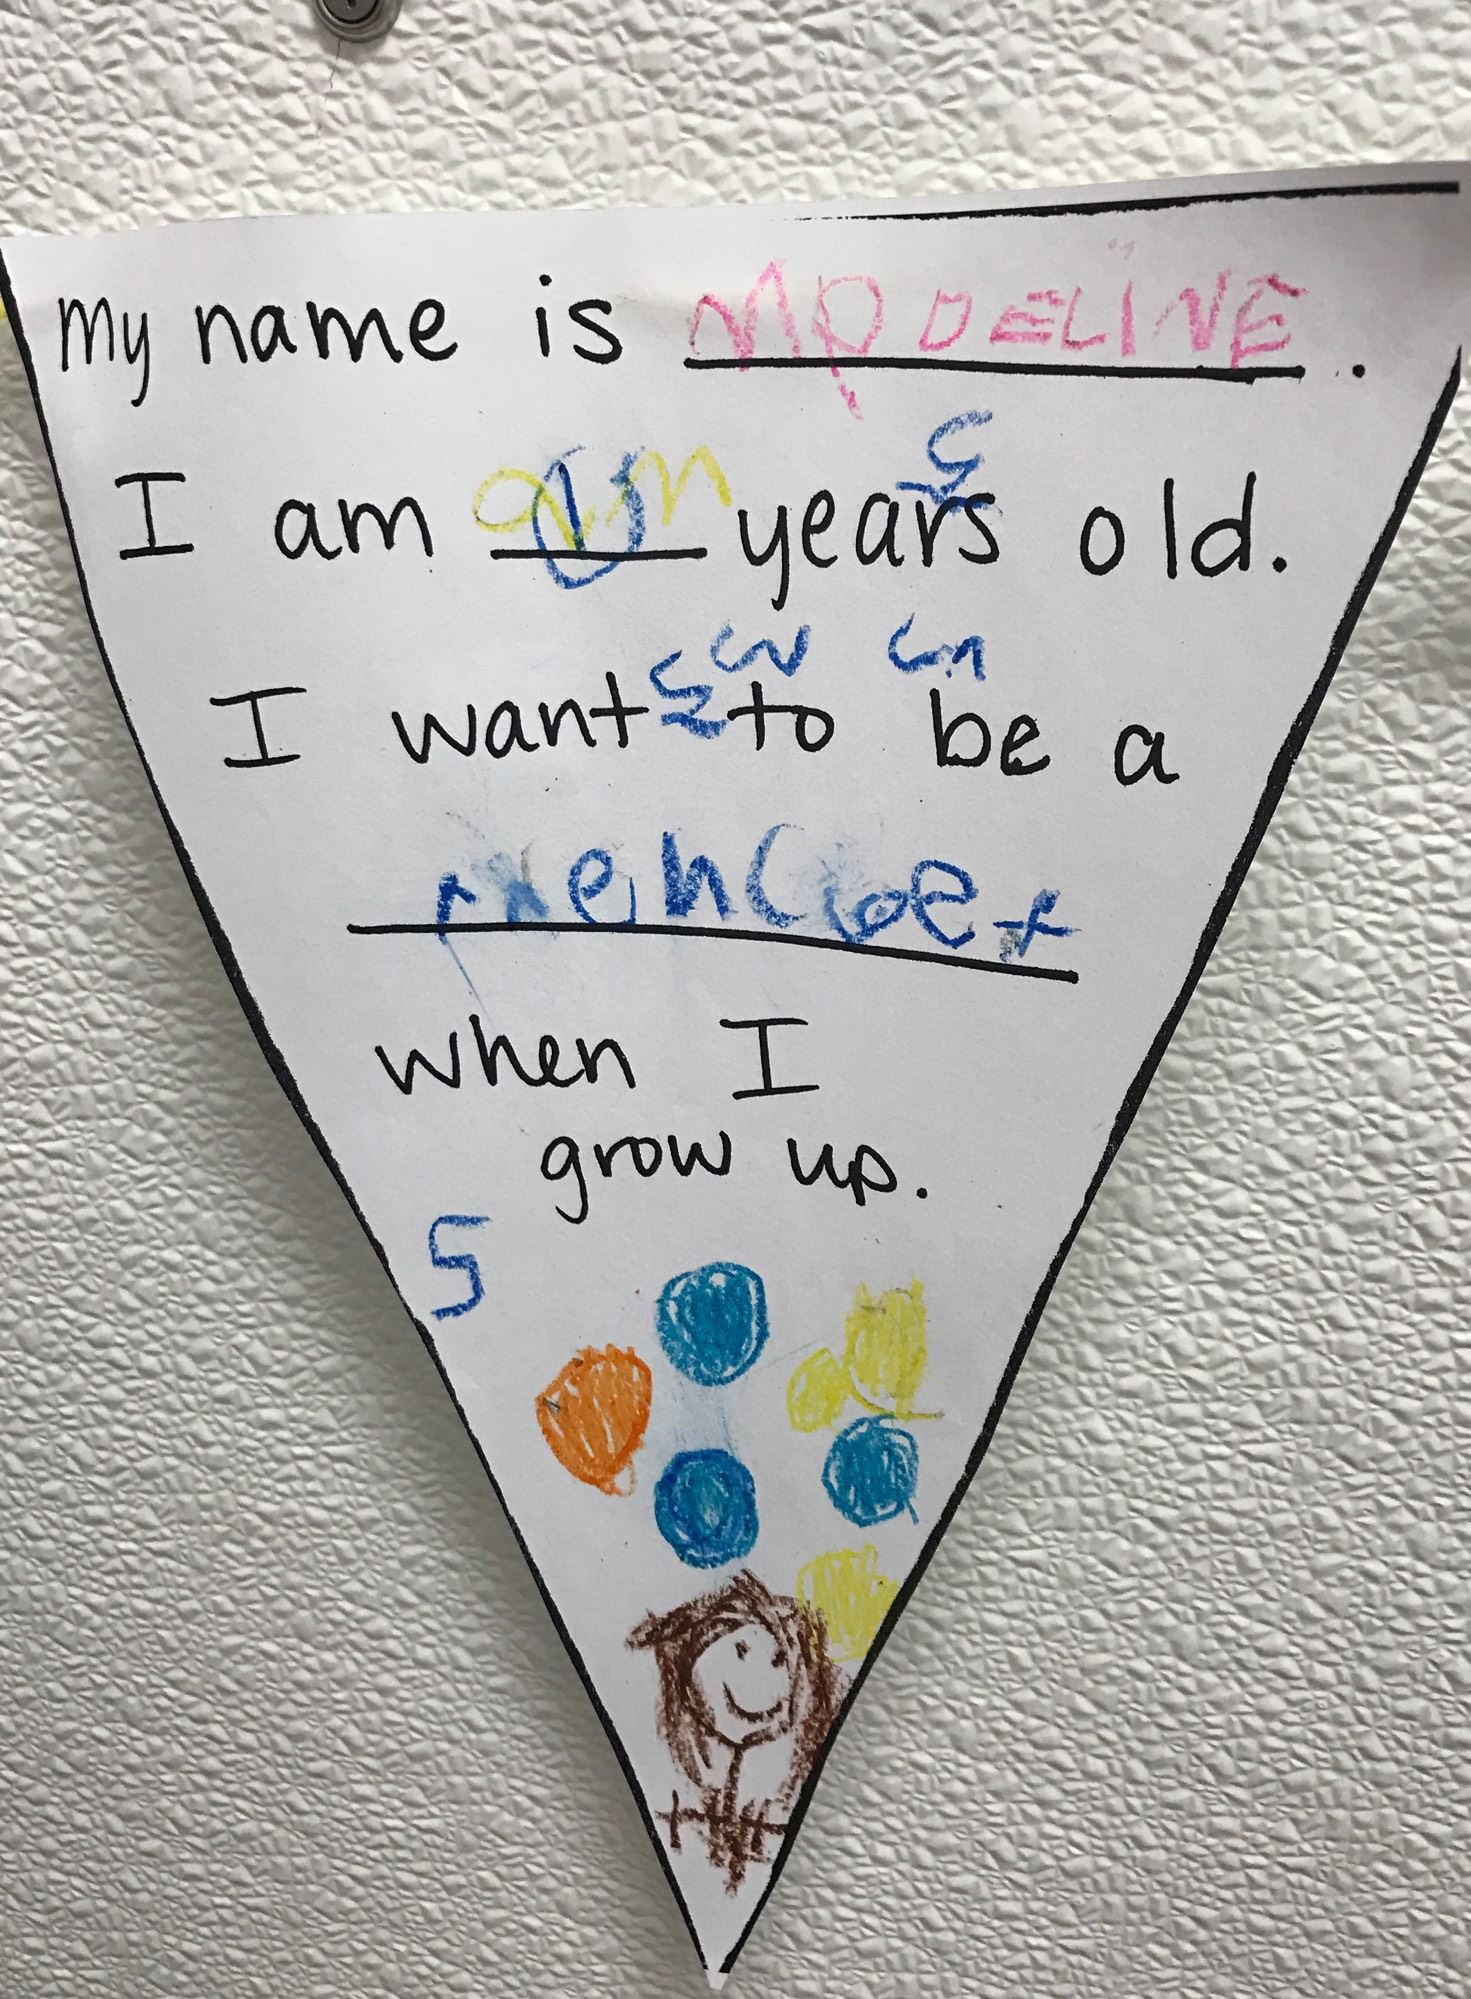 My name is MADELINE.
I am years old.
I want to be a
when I
grow up.
5